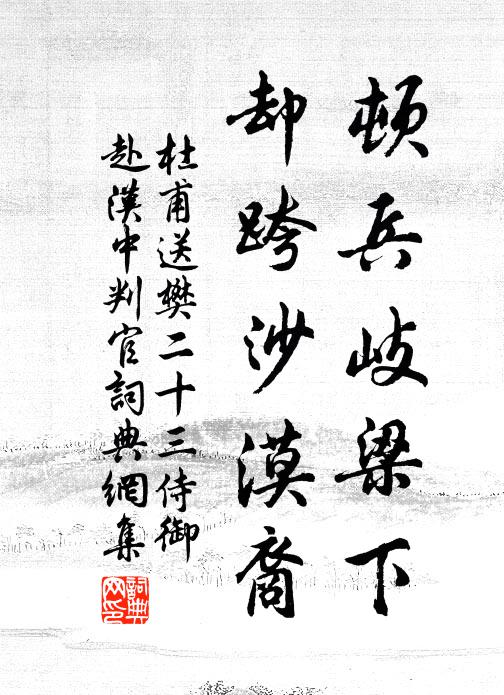 頓兵岐梁下
却跨沙漠裔
杜甫送樊二十三侍御
赴漢中判官詞典網集
詞典
网印